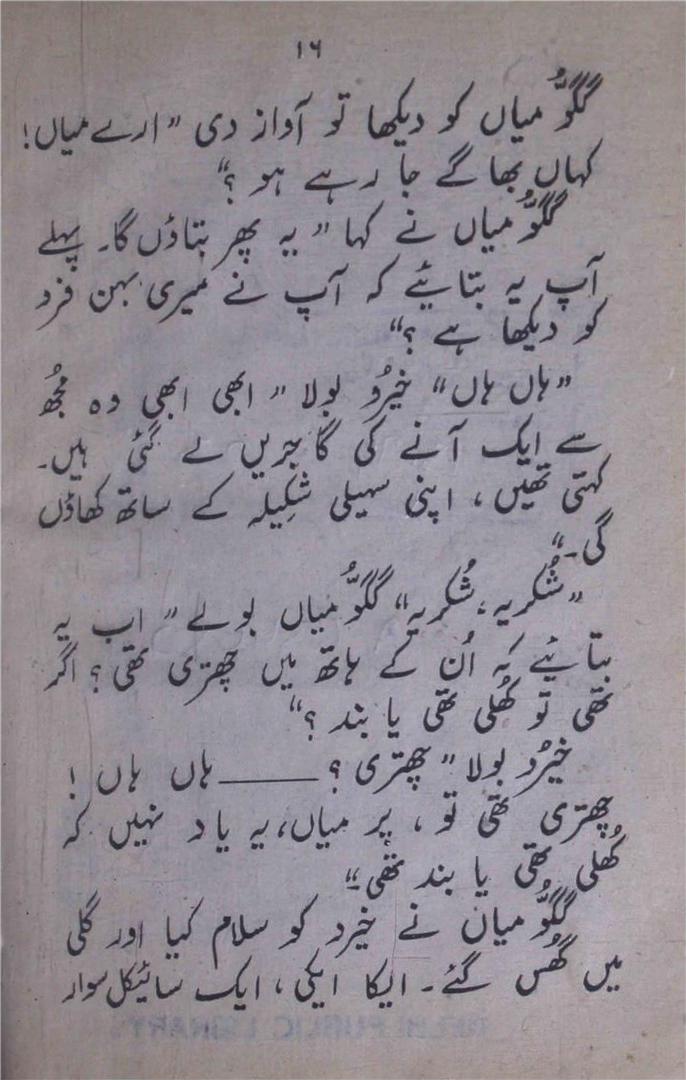 ۱۶
گگّو میاں کو دیکھا تو آواز دی ”ارے میاں!
کہاں بھاگے جا رہے ہو ؟“
گگّو میاں نے کہا ”یہ پھر بتاؤں گا۔ پہلے
آپ یہ بتائیے کہ آپ نے میری بہن فرد
کو دیکھا ہے ؟“
”ہاں ہاں“ خیرُد بولا ”ابھی ابھی وہ مجھ
سے ایک آنے کی گاجریں لے گئی ہیں۔
کہتی تھیں، اپنی سہیلی شکِیلہ کے ساتھ کھاؤں
گی۔“
”شُکریہ، شُکریہ“ گگّو میاں بولے ”اب یہ
بتائیے کہ اُن کے ہاتھ میں چھتری تھی؟ اگر
تھی تو کُھلی تھی یا بند ؟“
خیرُد بولا ”چھتری ؟ ——— ہاں ہاں !
چھتری تھی تو ، پر میاں، یہ یاد نہیں کہ
کُھلی تھی یا بند تھی۔“
گگّو میاں نے خیرد کو سلام کیا اور گلی
میں گُھس گئے۔ ایکا ایکی، ایک سائیکل سوار
DELHI PUBLIC LIBRARY